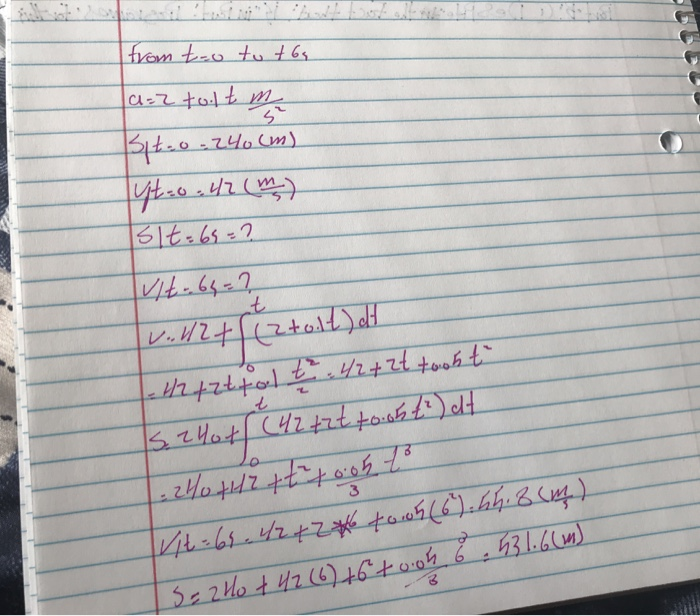 from t=0 to t6s
a=2+0.1t m/s²
S|t=0=240(m)
V|t=0=42(m/s)
S|t=6s=?
V|t=6s=?
V=42+∫₀ᵗ(2+0.1t)dt
=42+2t+0.1 t²/2=42+2t+0.05t²
S=240+∫₀ᵗ(42+2t+0.05t²)dt
=240+42+t²+0.05/3 t³
V|t=6s=42+2*6+0.05(6²)=55.8(m/s)
S=240+42(6)+6²+0.05/3 6³=531.6(m)